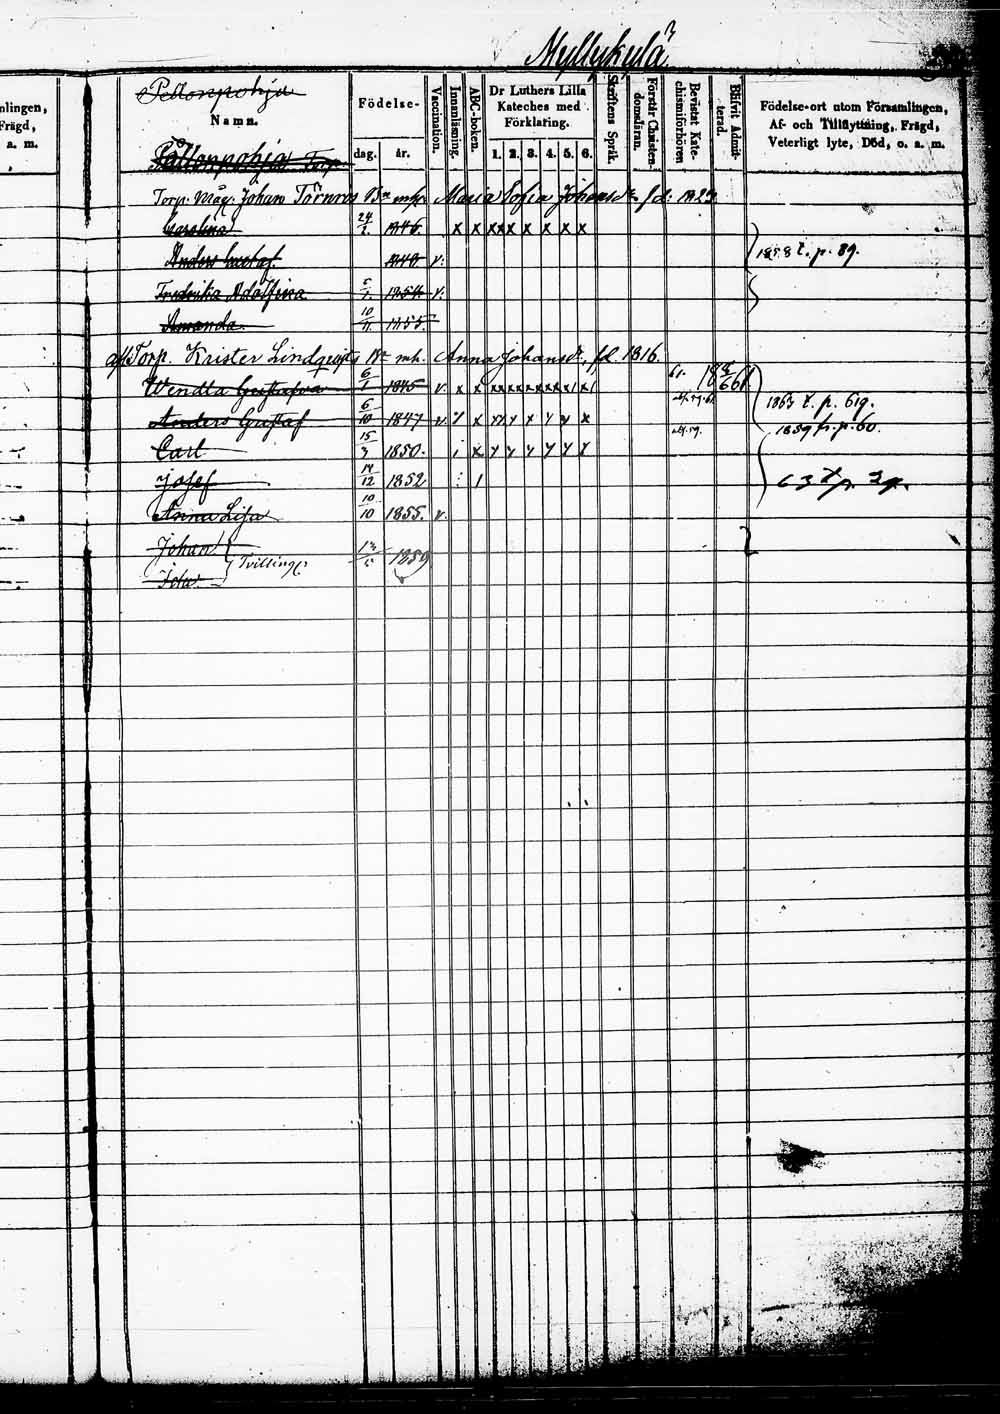 Myllykylä
mlingen,
Frägd,
a. m.
Pellonpohja
Namn.
Födelse-
dag. år.
Vaccination.
Innanläsning.
ABC-boken.
Dr Luthers Lilla
Kateches med
Förklaring.
1. 2. 3. 4. 5. 6.
Skriftens Språk.
Förstår Christen-
domsläran.
Bevistat Kate-
chismiförhören
Blifvit Admit-
terad.
Födelse-ort utom Församlingen,
Af- och Tillflyttning, Frägd,
Veterligt lyte, Död, o. a. m.
Pellonpohja Torp
Torp. Måg. Johan Törnros Bn m/hr Maria Sofia Johansdr. fd: 1823
Carolina 24/2. 1846. x x x x x x x x x
Anders Gustaf. 1840 v: 1858 t. p. 89.
Fredrika Adolfina 1854 v:
Amanda 10/11. 1855.
afl. Torp. Krister Lindqvists Bn mh. Anna Johansdr. fd. 1816.
Wendla Gustafva 6/1 1845 v. x x x x x x x x x x x 61. 1863 t. p. 619.
Anders Gustaf 6/10 1847 v. 1859 fr. p. 60.
Carl 15/3 1850.
Josef 14/12 1852 63 t. p.
Anna Lisa 10/10 1855. v.
Johan
Tvilling: 1859
Ida